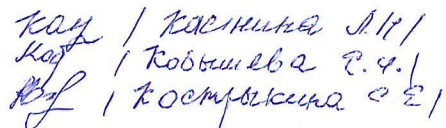 Кау / Каснина Л.Н /
Коб / Кобышева Г.Ч. /
/ Кострыкина С Е /